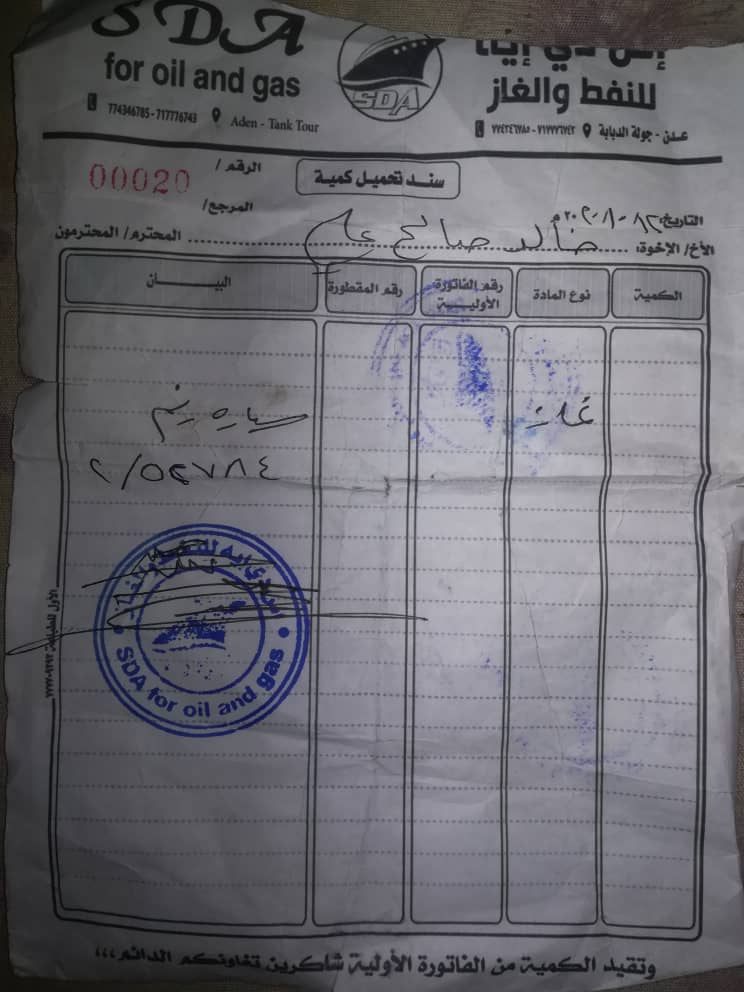 SDA
for oil and gas
774346785 - 717776743
Aden - Tank Tour
SDA
إس دي إيه
للنفط والغاز
عدن - جولة الدبابة ٧١٧٧٧٦٧٤٣ - ٧٧٤٣٤٦٧٨٥
الرقم / 00020
سند تحميل كمية
المرجع /
التاريخ:
الأخ/ الإخوة: خالد صالح علي المحترم/ المحترمون
الكمية نوع المادة رقم الفاتورة الأولية رقم المقطورة البيان
غاز سياره
٢/٥٢٧٨٤
SDA for oil and gas
وتقيد الكمية من الفاتورة الأولية شاكرين تعاونكم الدائم،،،